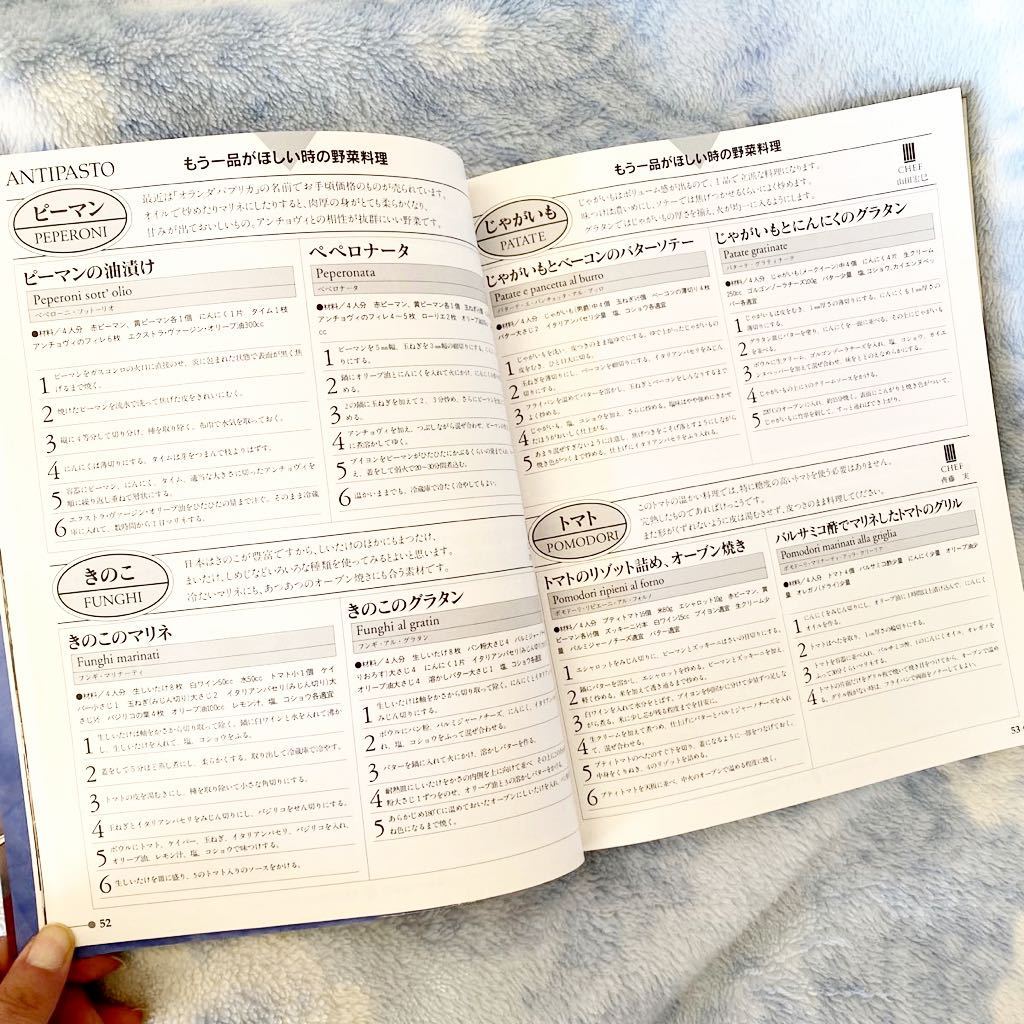 ANTIPASTO
もう一品がほしい時の野菜料理
ピーマン
PEPERONI
最近は「オランダパプリカ」の名前でお手頃価格のものが売られています。
オイルで炒めたりマリネにしたりすると、肉厚の身がとても柔らかくなり、
甘みが出ておいしいもの。アンチョヴィとの相性が抜群にいい野菜です。
ピーマンの油漬け
Peperoni sott' olio
ペペローニ・ソットーリオ
●材料／4人分 赤ピーマン、黄ピーマン各1個 にんにく1片 タイム1枝
アンチョヴィのフィレ6枚 エクストラ・ヴァージン・オリーブ油300cc
1 ピーマンをガスコンロの火口に直接のせ、炎に包まれた状態で表面が黒く焦
げるまで焼く。
2 焼けたピーマンを流水で洗って焦げた皮をきれいにむく。
3 縦に4等分して切り分け、種を取り除く。布巾で水気を取っておく。
4 にんにくは薄切りにする。タイムは芽をつまんで枝よりはずす。
5 容器にピーマン、にんにく、タイム、適当な大きさに切ったアンチョヴィを
順に繰り返し重ねて層状にする。
6 エクストラ・ヴァージン・オリーブ油をひたひたの量まで注ぐ。そのまま冷蔵
庫に入れて、数時間から1日マリネする。
ペペロナータ
Peperonata
ペペロナータ
●材料／4人分 赤ピーマン、黄ピーマン各1個 玉ねぎ
アンチョヴィのフィレ4〜5枚 ローリエ2枚 オリーブ油
1 ピーマンを5mm幅、玉ねぎを3mm幅の細切りにする。
りにする。
2 鍋にオリーブ油とにんにくを入れて火にかけ、
める。
3 2の鍋に玉ねぎを加えて2、3分炒め、さらにピーマンを
4 アンチョヴィを加え、つぶしながら混ぜ合わせ、
に煮溶かしてゆく。
5 ブイヨンをピーマンがひたひたにかぶるくらいの量まで
え、蓋をして弱火で20〜30分間煮込む。
6 温かいままでも、冷蔵庫で冷たく冷やしてもよい。
きのこ
FUNGHI
日本はきのこが豊富ですから、しいたけのほかにもまつたけ、
まいたけ、しめじなどいろいろな種類を使ってみるとよいと思います。
冷たいマリネにも、あつあつのオーブン焼きにも合う素材です。
きのこのマリネ
Funghi marinati
フンギ・マリナーティ
●材料／4人分 生しいたけ8枚 白ワイン50cc 水50cc トマト小1個 ケイ
パー小さじ1 玉ねぎ(みじん切り)大さじ2 イタリアンパセリ(みじん切り)大
さじ½ バジリコの葉4枚 オリーブ油100cc レモン汁、塩、コショウ各適宜
1 生しいたけは軸をかさから切り取って除く。鍋に白ワインと水を入れて沸か
し、生しいたけを入れて、塩、コショウをふる。
2 蓋をして5分ほど蒸し煮にし、柔らかくする。取り出して冷蔵庫で冷やす。
3 トマトの皮を湯むきにし、種を取り除いて小さな角切りにする。
4 玉ねぎとイタリアンパセリをみじん切りにし、バジリコをせん切りにする。
5 ボウルにトマト、ケイパー、玉ねぎ、イタリアンパセリ、バジリコを入れ、
オリーブ油、レモン汁、塩、コショウで味つけする。
6 生しいたけを皿に盛り、5のトマト入りのソースをかける。
きのこのグラタン
Funghi al gratin
フンギ・アル・グラタン
●材料／4人分 生しいたけ8枚 パン粉大さじ4 パルミジャーノ
おろす)大さじ4 にんにく1片 イタリアンパセリ(みじん切り)
オリーブ油大さじ4 溶かしバター大さじ1 塩、コショウ各適宜
1 生しいたけは軸をかさから切り取って除く。にんにく、
みじん切りにする。
2 ボウルにパン粉、パルミジャーノチーズ、にんにく、
れ、塩、コショウをふって混ぜ合わせる。
3 バターを鍋に入れて火にかけ、溶かしバターを作る。
4 耐熱皿にしいたけをかさの内側を上に向けて並べ、その上に
粉大さじ1ずつをのせ、オリーブ油と3の溶かしバターをかける。
5 あらかじめ180℃に温めておいたオーブンにしいたけを入れ、
ね色になるまで焼く。
52
もう一品がほしい時の野菜料理
CHEF
山田宏巳
じゃがいも
PATATE
じゃがいもはボリューム感が出るので、1品で立派な料理になります。
味つけは濃いめにし、ソテーでは焦げつかせるくらいによく炒めます。
グラタンではじゃがいもの厚さを揃え、火が均一に入るようにします。
じゃがいもとベーコンのバターソテー
Patate e pancetta al burro
パターテ・エ・パンチェッタ・アル・ブッロ
●材料／4人分 じゃがいも(男爵)中4個 玉ねぎ½個 ベーコンの薄切り4枚
バター大さじ2 イタリアンパセリ少量 塩、コショウ各適宜
1 じゃがいもを洗い、皮つきのまま塩ゆでにする。ゆで上がったじゃがいもの
皮をむき、ひと口大に切る。
2 玉ねぎを薄切りにし、ベーコンを細切りにする。イタリアンパセリをみじん
切りにする。
3 フライパンを温めてバターを溶かし、玉ねぎとベーコンをしんなりするまで
よく炒める。
4 じゃがいも、塩、コショウを加え、さらに炒める。塩味はやや強めにきかせ
たほうがおいしく仕上がる。
5 あまり混ぜすぎないように注意し、焦げつきをこそげ落とすようにしながら
焼き色がつくまで炒める。仕上げにイタリアンパセリをふり入れる。
じゃがいもとにんにくのグラタン
Patate gratinate
パターテ・グラティナーテ
●材料／4人分 じゃがいも(メークイーン)中4個 にんにく4片 生クリーム
250cc ゴルゴンゾーラチーズ100g バター少量 塩、コショウ、カイエンヌペッ
パー各適宜
1 じゃがいもは皮をむき、1mm厚さの薄切りにする。にんにくも1mm厚さの
薄切りにする。
2 グラタン皿にバターを塗り、にんにくを一面に並べる。その上にじゃがいも
を並べる。
3 ボウルに生クリーム、ゴルゴンゾーラチーズを入れ、塩、コショウ、カイエ
ンヌペッパーを加えて混ぜ合わせ、味をととのえなめらかにする。
4 じゃがいもの上に3のクリームソースをかける。
5 220℃のオーブンに入れ、約15分焼く。表面にこんがりと焼き色がついて、
じゃがいもに竹串を刺して、すっと通ればでき上がり。
CHEF
斉藤 実
トマト
POMODORI
このトマトの温かい料理では、特に糖度の高いトマトを使う必要はありません。
完熟したものであればけっこうです。
また形がくずれないように皮は湯むきせず、皮つきのまま料理してください。
トマトのリゾット詰め、オーブン焼き
Pomodori ripieni al forno
ポモドーリ・リピエーニ・アル・フォルノ
●材料／4人分 プティトマト16個 米80g エシャロット10g 赤ピーマン、黄
ピーマン各½個 ズッキーニ½本 白ワイン15cc ブイヨン適宜 生クリーム少
量 パルミジャーノチーズ適宜 バター適宜
1 エシャロットをみじん切りに、ピーマンとズッキーニはさいの目切りにする。
2 鍋にバターを溶かし、エシャロットを炒める。ピーマンとズッキーニを加え
軽く炒める。米を加えて透き通るまで炒める。
3 白ワインを入れて水分をとばす。ブイヨンを何回かに分けて少量ずつ足しな
がら煮る。米に少し芯が残る程度までを目安に。
4 生クリームを加えて煮つめ、仕上げにバターとパルミジャーノチーズを入れ
て、混ぜ合わせる。
5 プティトマトのへたのすぐ下を切り、蓋になるように一部をつなげておく。
中身をくりぬき、4のリゾットを詰める。
6 プティトマトを天板に並べ、中火のオーブンで温める程度に焼く。
バルサミコ酢でマリネしたトマトのグリル
Pomodori marinati alla griglia
ポモドーリ・マリナーティ・アッラ・グリーリア
●材料／4人分 トマト4個 バルサミコ酢少量 にんにく少量 オリーブ油少
量 オレガノ(ドライ)少量
1 にんにくをみじん切りにし、オリーブ油に1時間以上漬け込んで、にんにく
オイルを作る。
2 トマトはへたを取り、1cm厚さの輪切りにする。
3 トマトを容器に並べ入れ、バルサミコ酢、1のにんにくオイル、オレガノを
ふって30分くらいマリネする。
4 トマトの片面だけをグリル板で焼いて焼き目をつけてから、オーブンで温め
る。グリル板がない時は、フライパンで両面をソテーしてもよい。
53